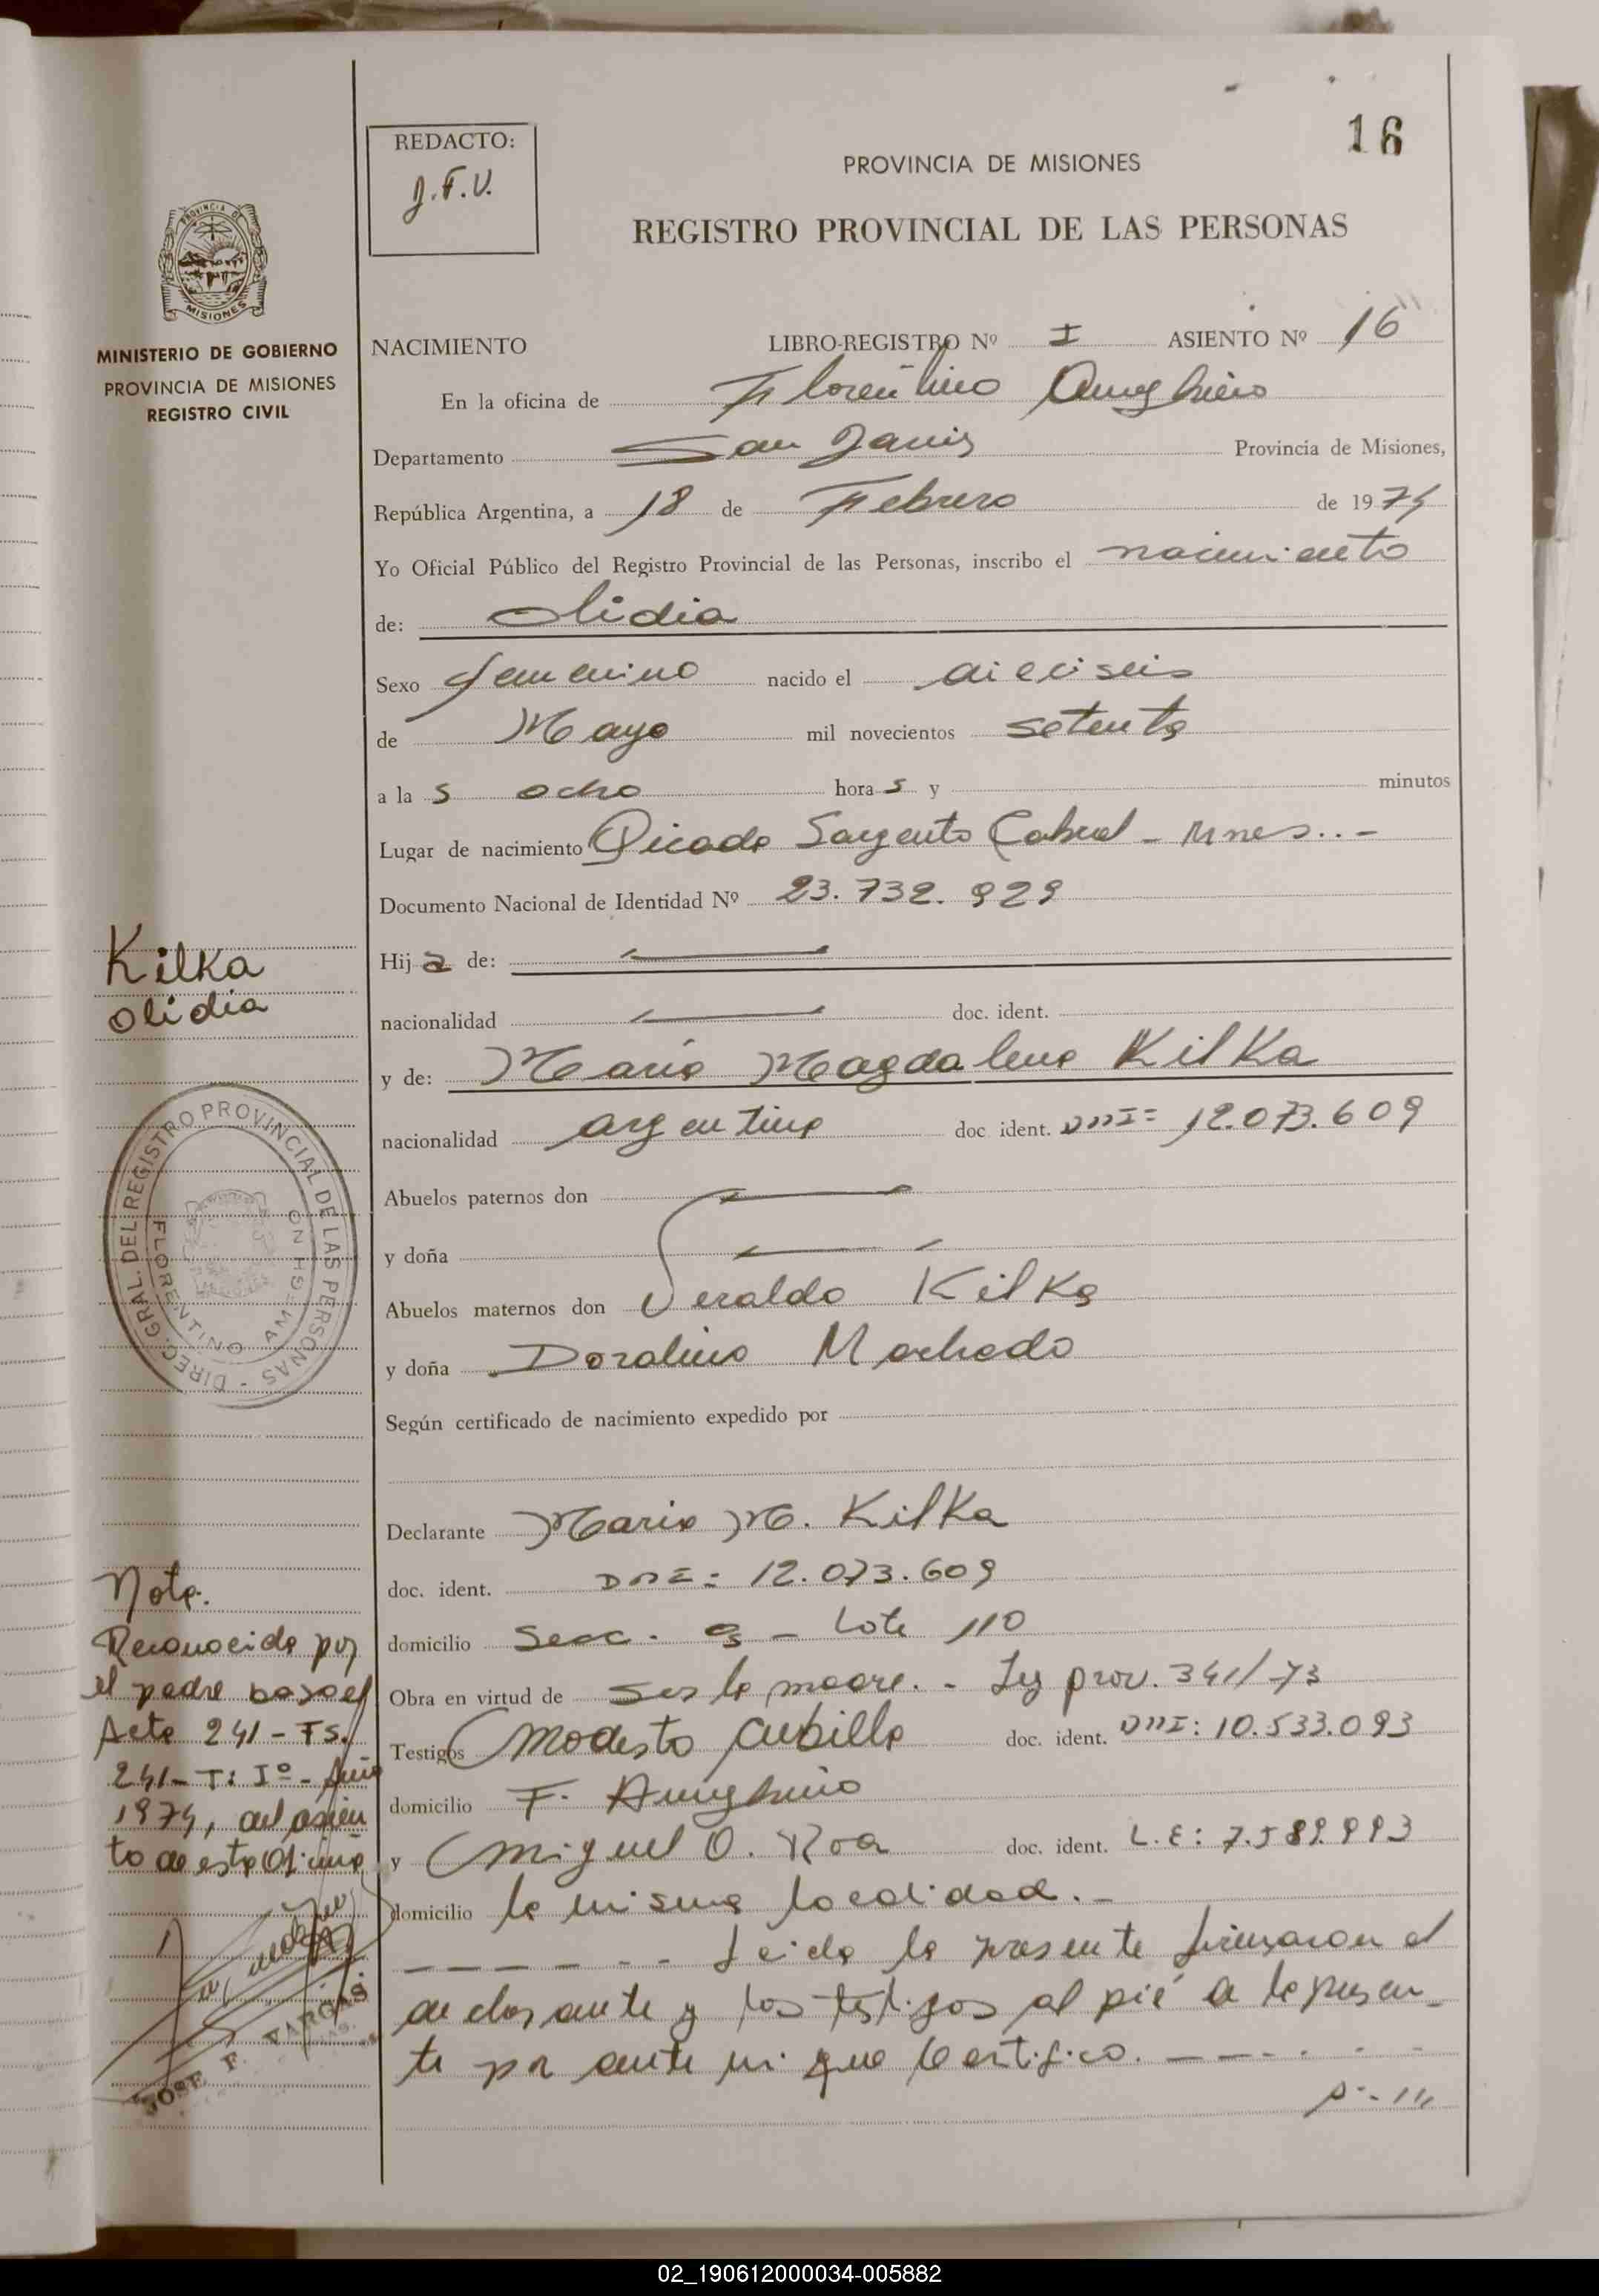 16
REDACTO:
J.F.V.
PROVINCIA DE MISIONES
REGISTRO PROVINCIAL DE LAS PERSONAS
PROVINCIA DE
MISIONES
MINISTERIO DE GOBIERNO
PROVINCIA DE MISIONES
REGISTRO CIVIL
NACIMIENTO LIBRO-REGISTRO Nº I ASIENTO Nº 16
En la oficina de Florentino Ameghino
Departamento San Javier Provincia de Misiones,
República Argentina, a 18 de Febrero de 1974
Yo Oficial Público del Registro Provincial de las Personas, inscribo el nacimiento
de: Olidia
Sexo femenino nacido el dieciseis
de Mayo mil novecientos setenta
a la s ocho hora s y minutos
Lugar de nacimiento Picada Sargento Cabral - Mnes..-
Documento Nacional de Identidad Nº 23.732.929
Hij a de:
nacionalidad doc. ident.
y de: Maria Magdalena Kilka
nacionalidad argentina doc ident. DNI= 12.073.609
Abuelos paternos don
y doña
Abuelos maternos don Geraldo Kilka
y doña Doralina Machado
Según certificado de nacimiento expedido por
Declarante Maria M. Kilka
doc. ident. DNI: 12.073.609
domicilio Secc. 9 - Lote 110
Obra en virtud de ser la madre. - Ley prov. 341/73
Testigos Modesto Cubilla doc. ident. DNI: 10.533.093
domicilio F. Ameghino
y Miguel O. Roa doc. ident. L.E: 7.589.993
domicilio la misma localidad.-
Leida la presente firmaron el
declarante y los testigos al pié de la presen-
te por ante mi que certifico.
Kilka
Olidia
DIREC. GRAL. DEL REGISTRO PROVINCIAL DE LAS PERSONAS -
FLORENTINO AMEGHINO
Nota.
Reconocida por
el padre bajo el
Acta 241 - Fs.
241 - T: Iº - Año
1974, del asien
to de esta Oficina
JOSE F. VARGAS
02_190612000034-005882